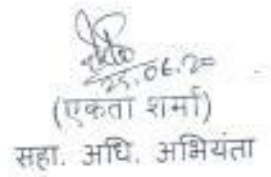 25.06.20
(एकता शर्मा)
सहा. अधि. अभियंता